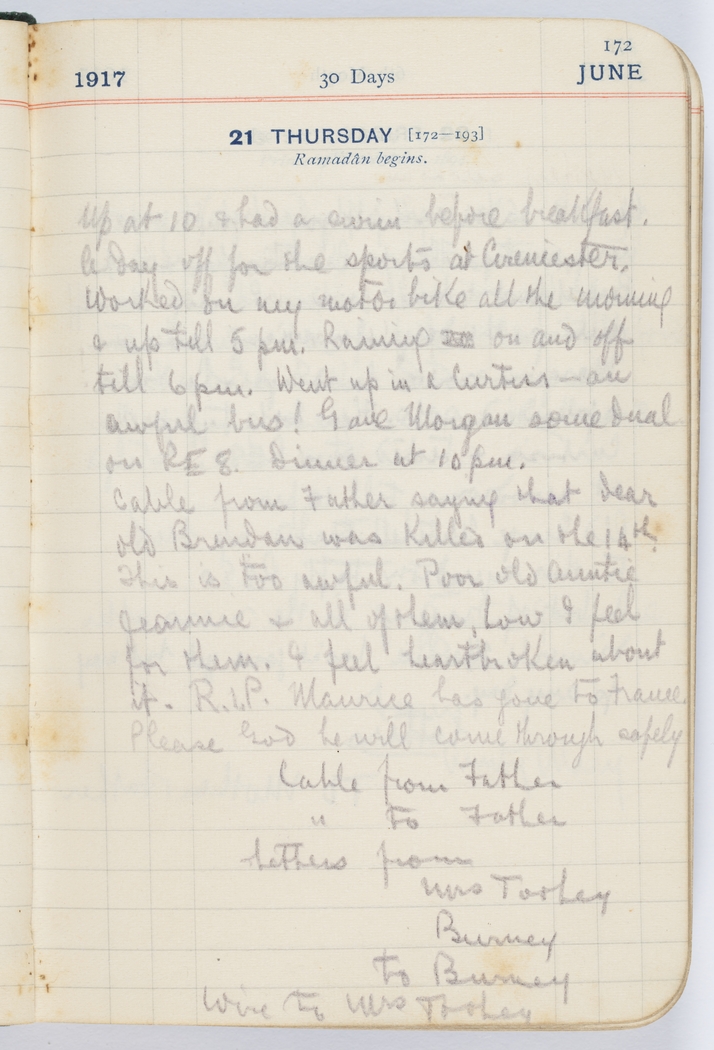 172
1917 30 Days JUNE
21 THURSDAY [172–193]
Ramadân begins.
Up at 10 & had a swim before breakfast.
A day off for the sports at Cirencester.
Worked on my motor bike all the morning
& up till 5 pm. Raining on and off
till 6 pm. Went up in a Curtiss — an
awful bus! Gave Morgan some dual
on RE 8. Dinner at 10 pm.
Cable from Father saying that dear
old Brendan was killed on the 14th.
This is too awful. Poor old Auntie
Jeannie & all of them, how I feel
for them. I feel heartbroken about
it. R.I.P. Maurice has gone to France.
Please God he will come through safely
Cable from Father
" to Father
Letters from
Mrs Toohey
Burney
to Burney
Wire to Mrs Toohey